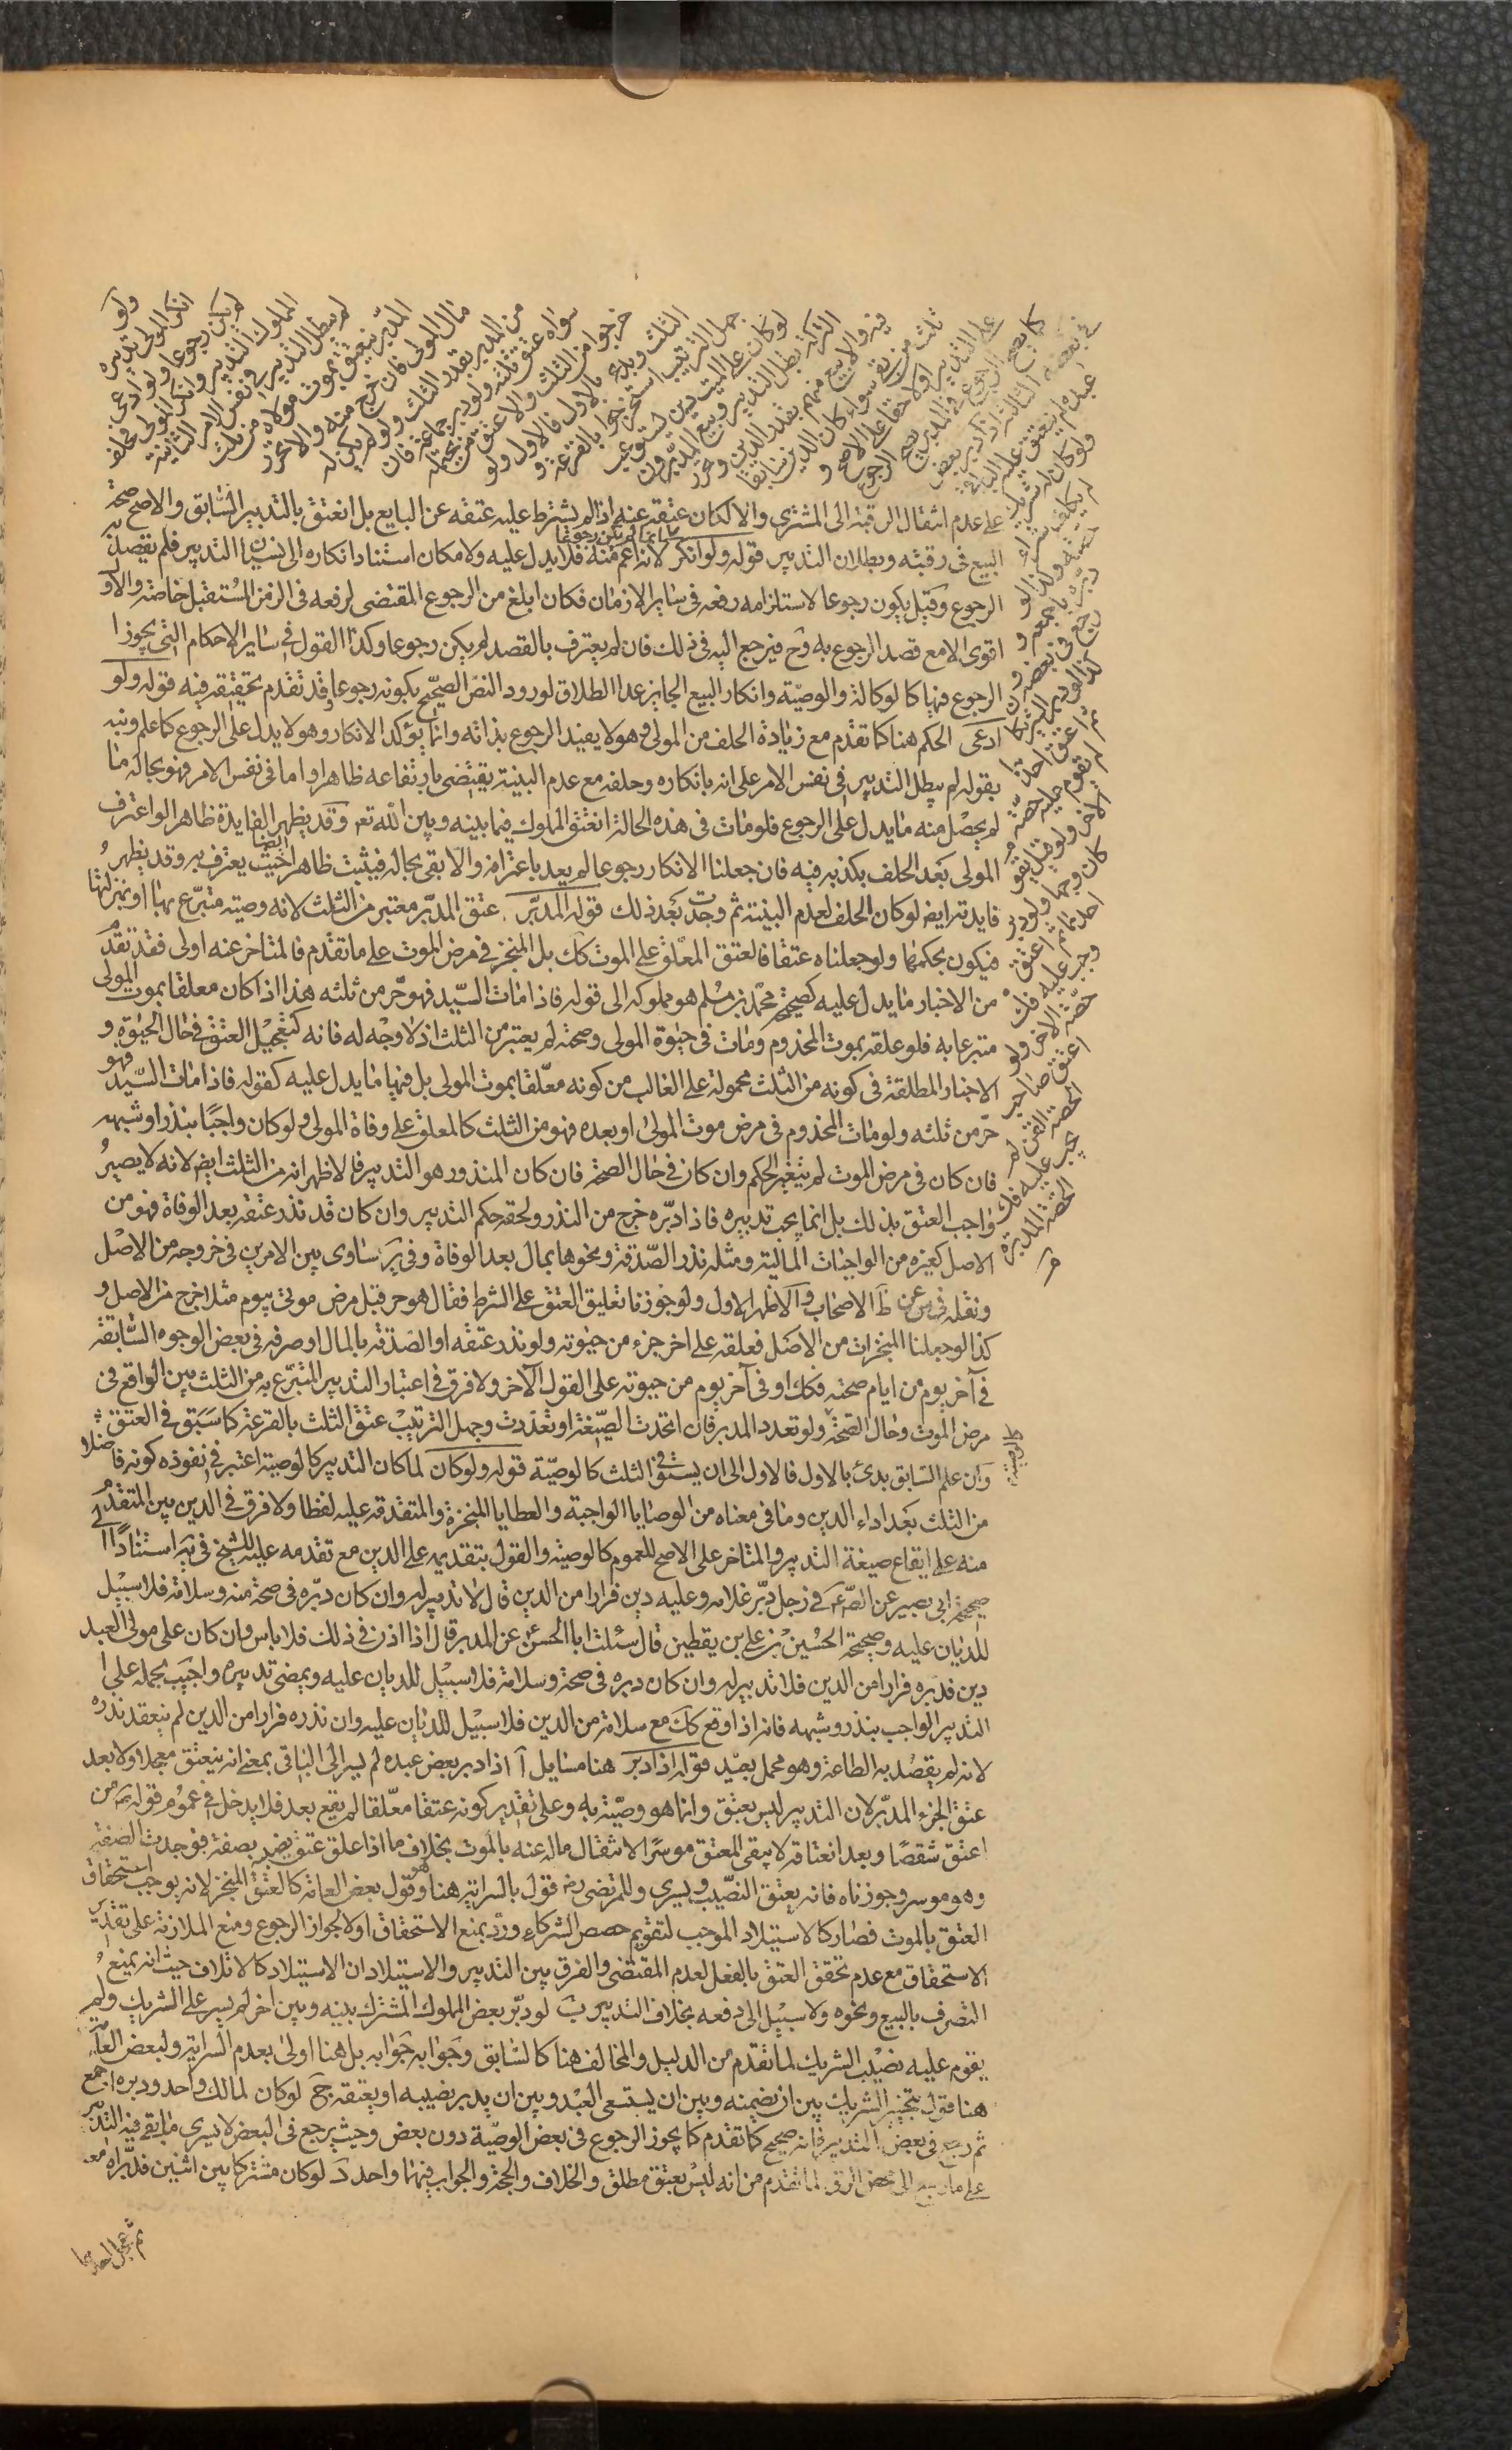 ولو
انكر المولى تدبيره
لم يكن رجوعا ولو ادعى
المملوك التدبير وانكر المولى فحلف
لم يبطل التدبير في نفس الامر الثانية
المدبر ينعتق بموت مولاه من ثلث
مال المولى فان خرج منه والا تحرر
من المدبر بقدر الثلث ولو لم يكن له
سواه عتق ثلثه ولو دبر جماعة فان
خرجوا من الثلث والا عتق من يحتمله
الثلث وبدء بالاول فالاول ولو
جهل الترتيب استخرجوا بالقرعة و
لو كان على الميت دين يستوعب
التركة بطل التدبير وبيع المدبرون
فيه والا بيع منهم بقدر الدين وتحرر
ثلث من بقى سواء كان الدين سابقا
على التدبير او لاحقا على الاصح و
كما يصح الرجوع في المدبر يصح الرجوع
في بعضه الثالثة اذا دبر بعض
عبده لم ينعتق عليه الباقي
ولو كان له شريك
لم يكلف شراء
حصته وكذا لو
دبره باجمعه و
رجع في بعضه و
كذا لو دبر الشريكان
ثم اعتق احدهما
لم تقوم عليه حصة
الاخر ولو قيل يقوم
كان وجها ولو دبر
احدهما ثم اعتق
وجب عليه فك
حصة الاخر ولو
اعتق صاحب
الحصة القن لم
يجب عليه فك
الحصة المدبرة
على عدم انتقال الرقبة الى المشتري والا لكان عتقه عنه اذا لم يشترط عليه عتقه عن البايع بل انعتق بالتدبير السابق والاصح صحة
البيع في رقبته وبطلان التدبير قوله ولو انكر انما لم يكن رجوعا لانه اعم منه فلا يدل عليه ولا مكان استناد انكاره الى نسيان التدبير فلم يقصد به
الرجوع وقيل يكون رجوعا لاستلزامه رفعه في ساير الازمان فكان ابلغ من الرجوع المقتضى لرفعه في الزمن المستقبل خاصة والاول
اقوى الا مع قصد الرجوع به وح فيرجع اليه في ذلك فان لم يعترف بالقصد لم يكن رجوعا وكذا القول في ساير الاحكام التي يجوز
الرجوع فيها كالوكالة والوصية وانكار البيع الجايز عدا الطلاق لورود النص الصحيح بكونه رجوعا وقد تقدم تحقيقه فيه قوله ولو
ادعى الحكم هنا كما تقدم مع زيادة الحلف من المولى وهو لا يفيد الرجوع بذاته وانما يؤكد الانكار وهو لا يدل على الرجوع كما علم ونبه
بقوله لم يبطل التدبير في نفس الامر على انه بانكاره وحلفه مع عدم البينة يقتضى بارتفاعه ظاهرا واما في نفس الامر فهو بحاله ما
لم يحصل منه ما يدل على الرجوع فلو مات في هذه الحالة انعتق المملوك فيما بينه وبين الله تعم وقد يظهر الفايدة ظاهرا لو اعترف
المولى بعد الحلف بكذبه فيه فان جعلنا الانكار رجوعا لم يعد باعترافه والا بقى بحاله فيثبت ظاهرا حيث يعترف به وقد يظهر
فايدته ايضا لو كان الحلف لعدم البينة ثم وجدت بعد ذلك قوله المدبر عتق المدبر معتبر من الثلث لانه وصية متبرع بها او بمنزلتها
فيكون بحكمها ولو جعلناه عتقا فالعتق المعلق على الموت كك بل المنجز في مرض الموت على ما تقدم فالمتاخر عنه اولى فقد تقدم
من الاخبار ما يدل عليه كصحيحة محمد بن مسلم هو مملوكه الى قوله فاذا مات السيد فهو حر من ثلثه هذا اذا كان معلقا بموت المولى
متبرعا به فلو علقه بموت المخدوم ومات في حيوة المولى وصحته لم يعتبر من الثلث اذ لا وجه له فانه كتعجيل العتق في حال الحيوة و
الاخبار المطلقة في كونه من الثلث محمولة على الغالب من كونه معلقا بموت المولى بل فيها ما يدل عليه كقوله فاذا مات السيد فهو
حر من ثلثه ولو مات المخدوم في مرض موت المولى او بعده فهو من الثلث كالمعلق على وفاة المولى ولو كان واجبا بنذر او شبهه
فان كان في مرض الموت لم يتغير الحكم وان كان في حال الصحة فان كان المنذور هو التدبير فالاظهر انه من الثلث ايضا لانه لا يصير
واجب العتق بذلك بل انما يجب تدبيره فاذا دبره خرج من النذر ولحقه حكم التدبير وان كان قد نذر عتقه بعد الوفاة فهو من
الاصل كغيره من الواجبات المالية ومثله نذر الصدقة ونحوها بمال بعد الوفاة وفي ير ساوى بين الامرين في خروجه من الاصل
ونقله في س عن ظ الاصحاب والاظهر الاول ولو جوزنا تعليق العتق على الشرط فقال هو حر قبل مرض موتى بيوم مثلا خرج من الاصل و
كذا لو جعلنا المنجزات من الاصل فعلقه على اخر جزء من حيوته ولو نذر عتقه او الصدقة بالمال او صرفه في بعض الوجوه السابقة
في آخر يوم من ايام صحته فكك او في آخر يوم من حيوته على القول الآخر ولا فرق في اعتبار التدبير المتبرع به من الثلث بين الواقع في
مرض الموت وحال الصحة كالوصية ولو تعدد المدبر فان اتحدت الصيغة او تعددت وجهل الترتيب عتق الثلث بالقرعة كما سبق في العتق
وان علم السابق بدئ بالاول فالاول الى ان يستوفى الثلث كالوصية قوله ولو كان لما كان التدبير كالوصية اعتبر في نفوذه كونه فاضلا
من الثلث بعد اداء الدين وما في معناه من الوصايا الواجبة والعطايا المنجزة والمتقدمة عليه لفظا ولا فرق في الدين بين المتقدم
منه على ايقاع صيغة التدبير والمتاخر على الاصح للعموم كالوصية والقول بتقديمه على الدين مع تقدمه عليه للشيخ في يه استنادا الى
صحيحة ابي بصير عن الص ع في رجل دبر غلامه وعليه دين فرارا من الدين قال لا تدبير له وان كان دبره في صحة منه وسلامة فلا سبيل
للديان عليه وصحيحة الحسين بن علي بن يقطين قال سئلت ابا الحسن ع عن المدبر قال اذا اذن في ذلك فلا باس وان كان على مولى العبد
دين فدبره فرارا من الدين فلا تدبير له وان كان دبره في صحة وسلامة فلا سبيل للديان عليه ويمضى تدبيره واجيب بحمله على
التدبير الواجب بنذر وشبهه فانه اذا وقع كك مع سلامة من الدين فلا سبيل للديان عليه وان نذره فرارا من الدين لم ينعقد نذره
لانه لم يقصد به الطاعة وهو محمل بعيد قوله اذا دبر هنا مسايل آ اذا دبر بعض عبده لم يسر الى الباقي بمعنى انه ينعتق معجلا ولا بعد
عتق الجزء المدبر لان التدبير ليس بعتق وانما هو وصية به وعلى تقدير كونه عتقا معلقا لم يقع بعد فلا يدخل في عموم قوله من
اعتق شقصا وبعد انعتاقه لا يبقى المعتق موسرا لانتقال ماله عنه بالموت بخلاف ما اذا علق عتق نصيبه بصفة فوجدت الصفة
وهو موسر وجوزناه فانه يعتق النصيب ويسرى وللمرتضى ره قول بالسراية هنا وهو قول بعض العامة كالعتق المنجز لانه يوجب استحقاق
العتق بالموت فصار كالاستيلاد الموجب لتقويم حصص الشركاء ورد بمنع الاستحقاق اولا لجواز الرجوع ومنع الملازمة على تقدير
الاستحقاق مع عدم تحقق العتق بالفعل لعدم المقتضى والفرق بين التدبير والاستيلاد ان الاستيلاد كالاتلاف حيث انه يمنع
التصرف بالبيع ونحوه ولا سبيل الى دفعه بخلاف التدبير ب لو دبر بعض المملوك المشترك بينه وبين اخر لم يسر على الشريك ولم
يقوم عليه نصيب الشريك لما تقدم من الدليل والمخالف هنا كالسابق وجوابه جوابه بل هنا اولى بعدم السراية ولبعض العامة
هنا قول بتخيير الشريك بين ان يضمنه وبين ان يستسعى العبد وبين ان يدبر نصيبه او يعتقه ج لو كان لمالك واحد ودبره اجمع
ثم رجع في بعض التدبير فانه صحيح كما تقدم كما يجوز الرجوع في بعض الوصية دون بعض وحيث يرجع في البعض لا يسرى ما بقى فيه التدبير
على ما رجع الى محض الرق لما تقدم من انه ليس بعتق مطلق والخلاف والحجة والجواب فيهما واحد د لو كان مشتركا بين اثنين فدبراه معا
ثم عجل احدهما